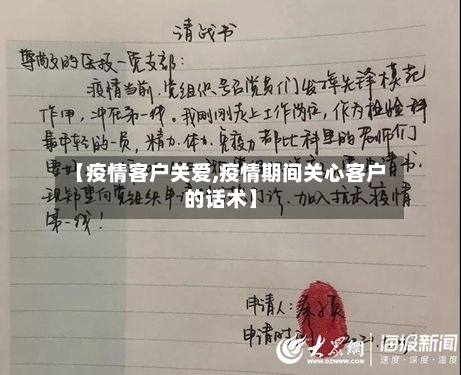 请战书
尊敬的医技一党支部:
疫情当前,党组织号召党员们发挥先锋模范
作用,冲在第一线。我刚刚走上工作岗位,作为检验科
最年轻的一员,精力、体力、免疫力都比科里的老师们
【疫情客户关爱,疫情期间关心客户
的话术】
现郑重向党组织申
加入抗击疫情
第一线!
申请人:
申请时
大众网
海报新闻
速度·深度·温度